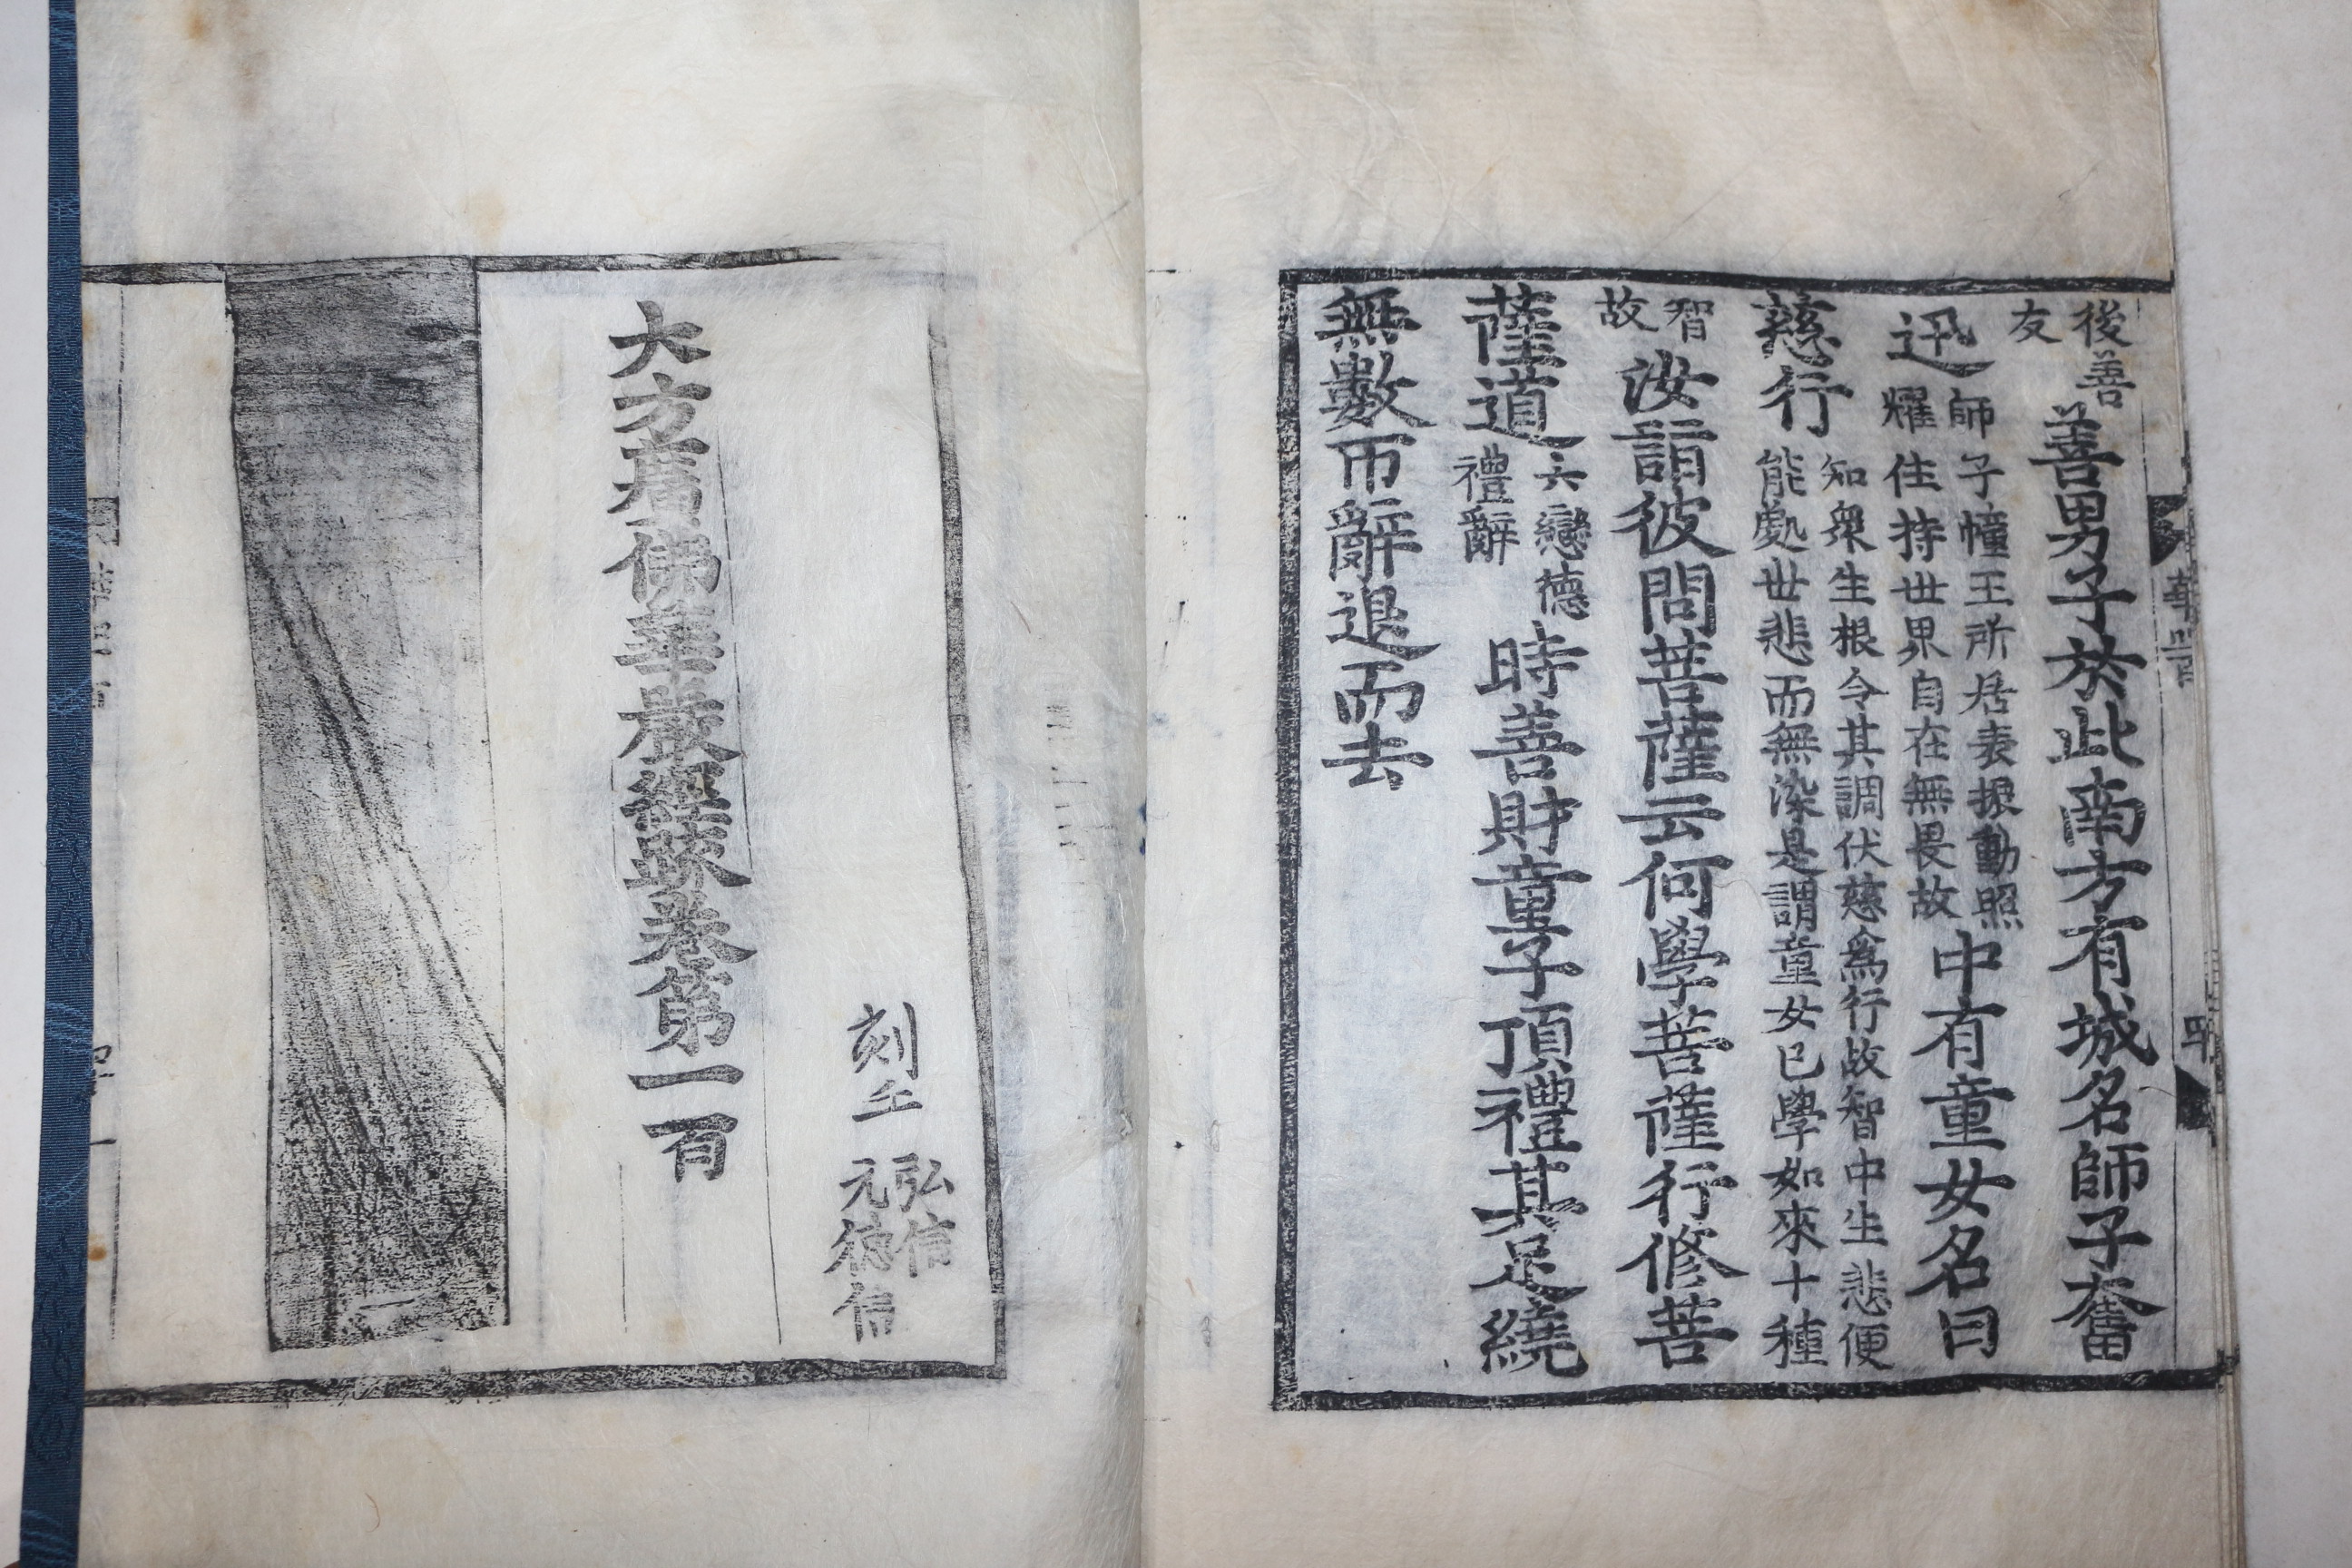 後善
友
善男子於此南方有城名師子奮
迅
師子幢王所居表振動照
耀住持世界自在無畏故
中有童女名曰
慈行
知衆生根令其調伏慈爲行故智中生悲便
能處世悲而無染是謂童女已學如來十種
智
故
汝詣彼問菩薩云何學菩薩行修菩
薩道
六戀德
禮辭
時善財童子頂禮其足繞
無數帀辭退而去
刻工
弘信
元德信
大方廣佛華嚴經疏卷第一百